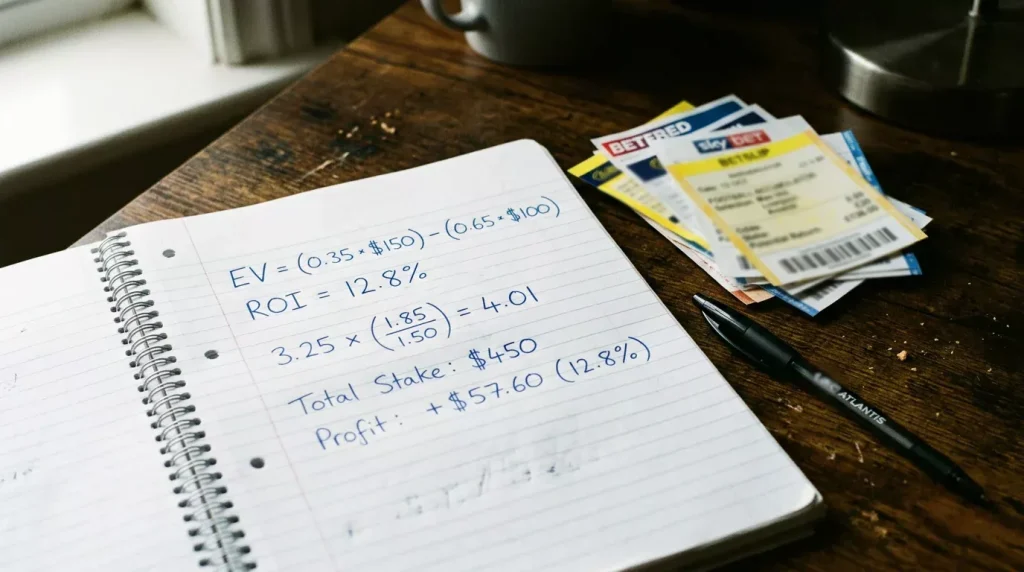 EV = (0.35 × $150) − (0.65 × $100)
ROI = 12.8%
3.25 × (1.85/1.50) = 4.01
Total Stake: $450
Profit: + $57.60 (12.8%)
BETFRED
sky BET
BETSLIP
ATLANTIS